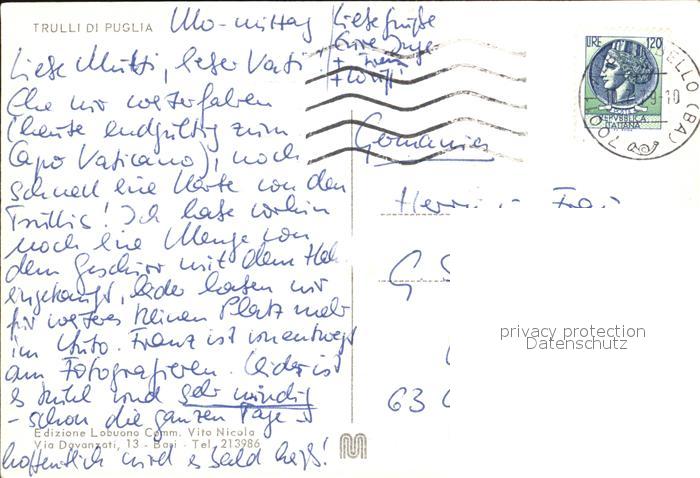 TRULLI DI PUGLIA
Mo-mittag
Liebe Grüße
Eure Inge
+ Franz
Liebe Mutti, lieber Vati!
Ehe wir weiterfahren
(heute endgültig zum
Capo Vaticano), noch
schnell eine Karte von den
Trullis! Ich habe vorhin
noch eine Menge von
dem Geschirr mit dem
eingekauft, leider haben wir
für weiteres keinen Platz mehr
im Auto. Franz ist unentwegt
am Fotografieren. Leider ist
es kühl und sehr windig
- schon die ganzen Tage
hoffentlich wird es bald heiß!
Edizione Lobuono Comm. Vito Nicola
Via Davanzati, 13 - Bari - Tel. 213986
Germania
63
LIRE 120
REPVBBLICA
ITALIANA
ELLO (BA)
9-10
privacy protection
Datenschutz